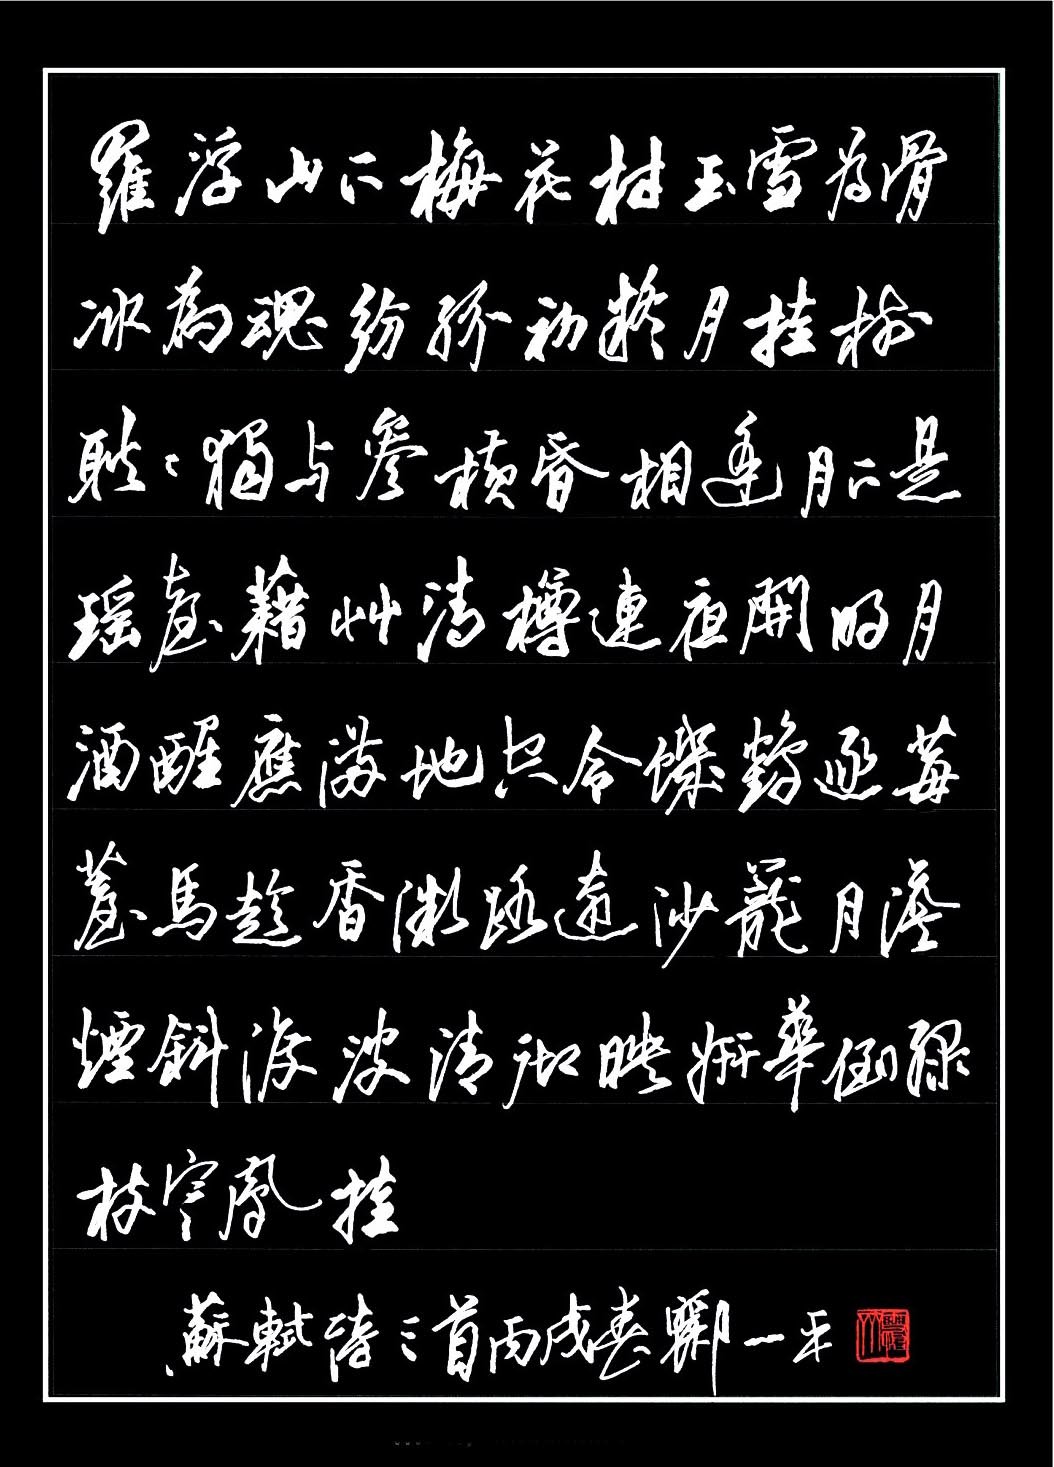 羅浮山下梅花村玉雪為骨
冰為魂紛紛初疑月挂樹
耿〻獨与參橫昏相逢月下是
瑶臺藉艸清樽連夜開明月
酒醒應滿地只令饑鶴逐莓
薹馬趁香微路遠沙籠月淡
煙斜渡波清彻映妍華倒綠
枝寒鳳挂
蘇軾詩三首丙戌春關一平